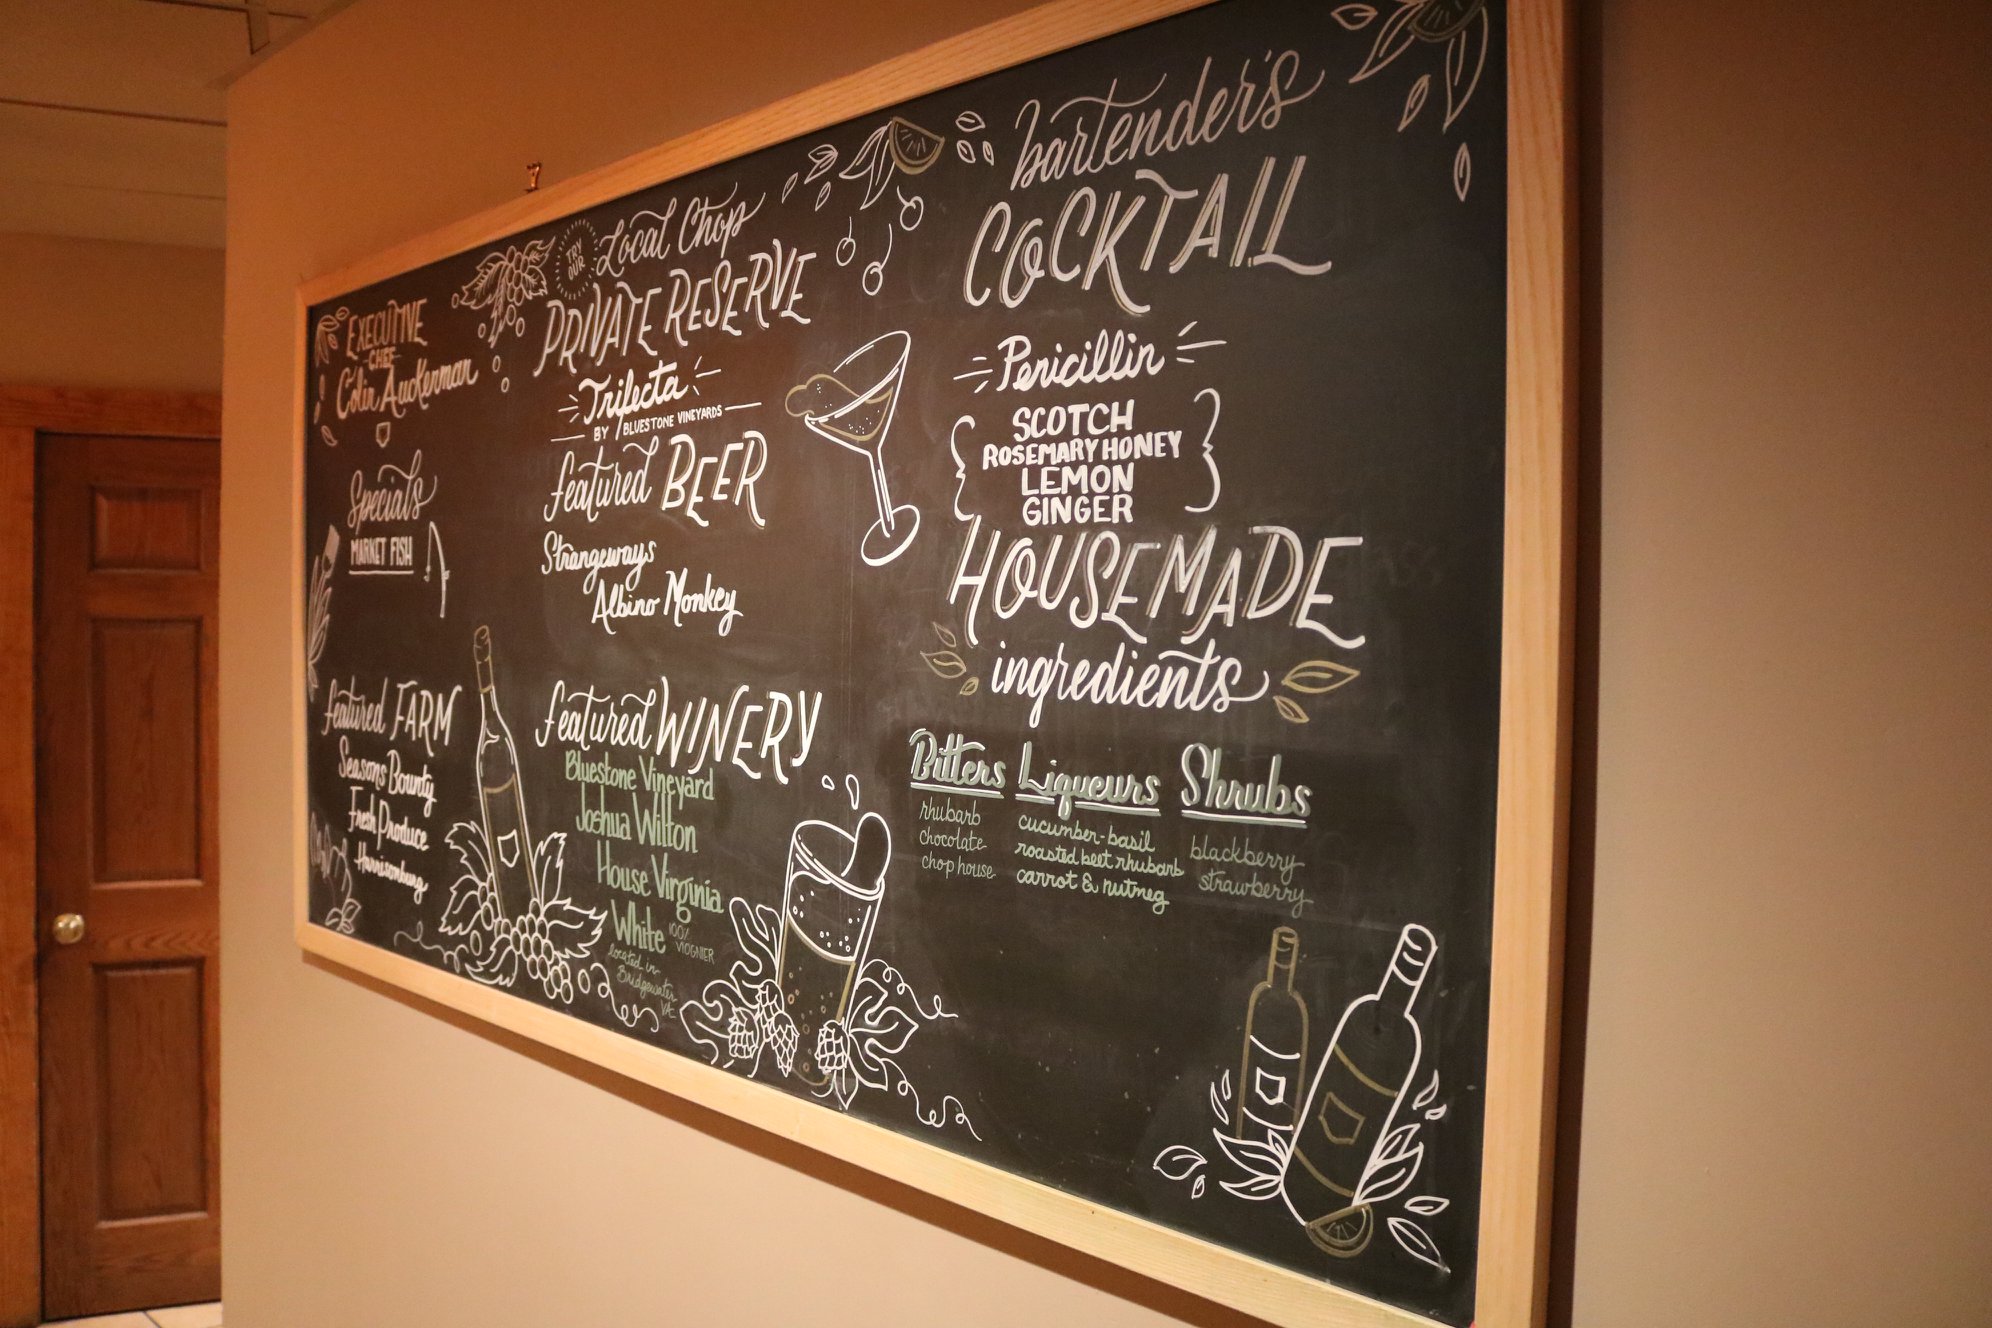 EXECUTIVE
CHEF
Colin Auckerman
Specials
MARKET FISH
featured FARM
Seasons Bounty
Fresh Produce
Harrisonburg
TRY
OUR
Local Chop
PRIVATE RESERVE
Trifecta
BY BLUESTONE VINEYARDS
featured BEER
Strangeways
Albino Monkey
featured WINERY
Bluestone Vineyard
Joshua Wilton
House Virginia
White 100% VIOGNIER
located in
Bridgewater
VA
bartender's
COCKTAIL
Penicillin
SCOTCH
ROSEMARY HONEY
LEMON
GINGER
HOUSEMADE
ingredients
Bitters
rhubarb
chocolate
chop house
Liqueurs
cucumber-basil
roasted beet rhubarb
carrot & nutmeg
Shrubs
blackberry
strawberry